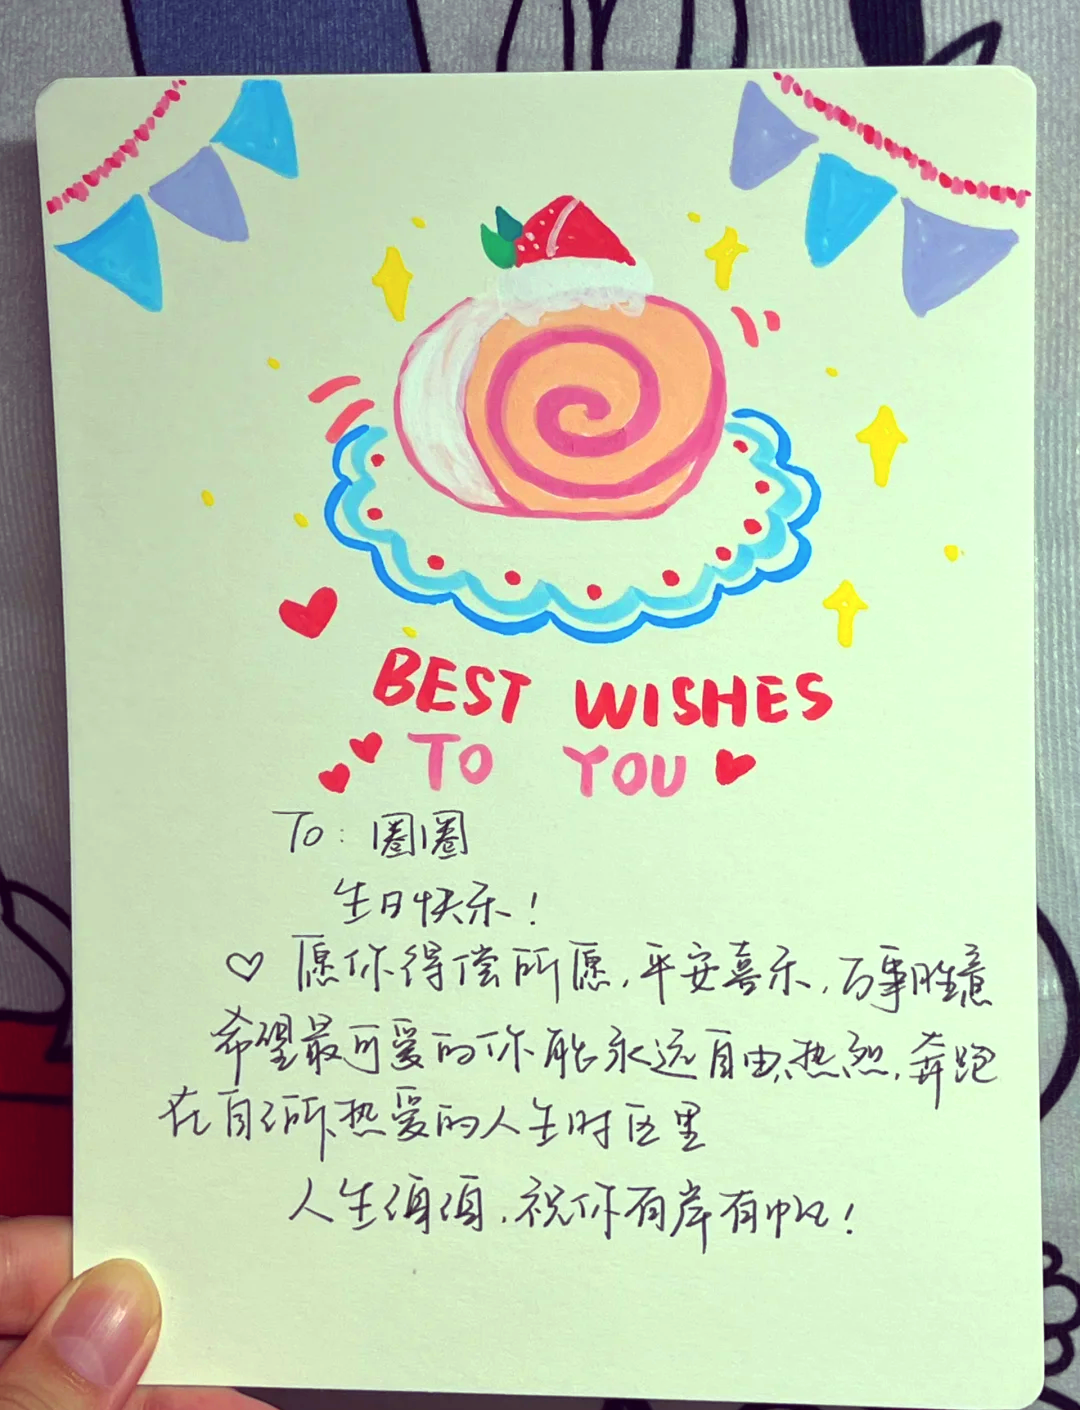 BEST WISHES
TO YOU
To：圈圈
生日快乐！
愿你得偿所愿，平安喜乐，万事胜意
希望最可爱的你能永远自由、热烈，奔跑
在自己所热爱的人生时区里
人生海海，祝你有岸有帆！